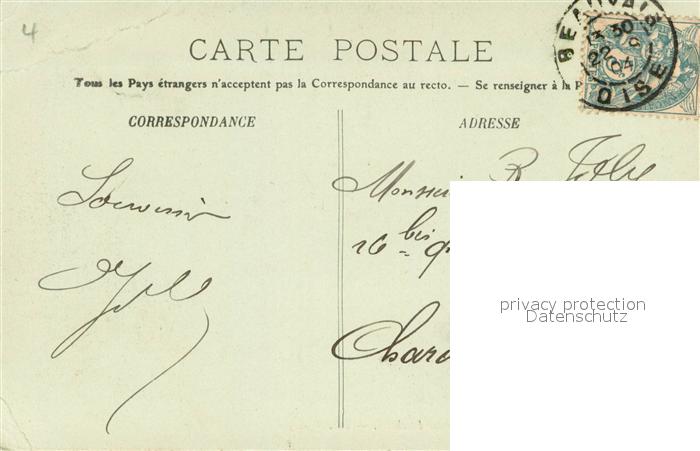 4
CARTE POSTALE
Tous les Pays étrangers n'acceptent pas la Correspondance au recto. — Se renseigner à la P
CORRESPONDANCE
ADRESSE
BEAUVAIS
13 30
22 9
04
OISE
Souvenir
Monsieu R.
16 bis
Char
privacy protection
Datenschutz